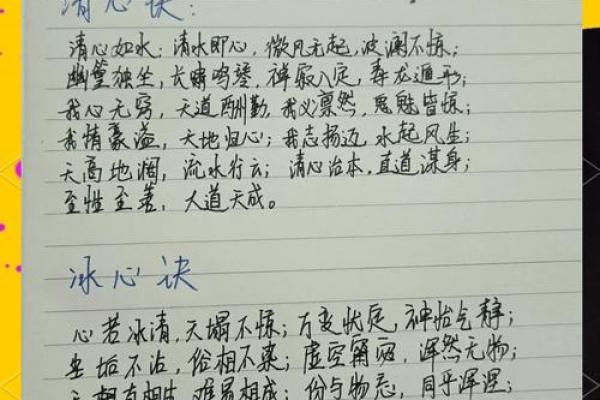 清心诀:
清心如水,清水即心,微风无起,波澜不惊;
幽篁独坐,长啸鸣琴,禅寂入定,毒龙遁形;
我心无窍,天道酬勤,我义凛然,鬼魅皆惊;
我情豪溢,天地归心;我志扬迈,水起风生;
天高地阔,流水行云;清心治本,直道谋身;
至性至善,大道天成。
冰心诀
心若冰清,天塌不惊;万变犹定,神怡气静;
尘垢不沾,俗相不染;虚空甯宓,浑然无物;
无相有相生,难易相成;份与物忘,同乎浑涅;